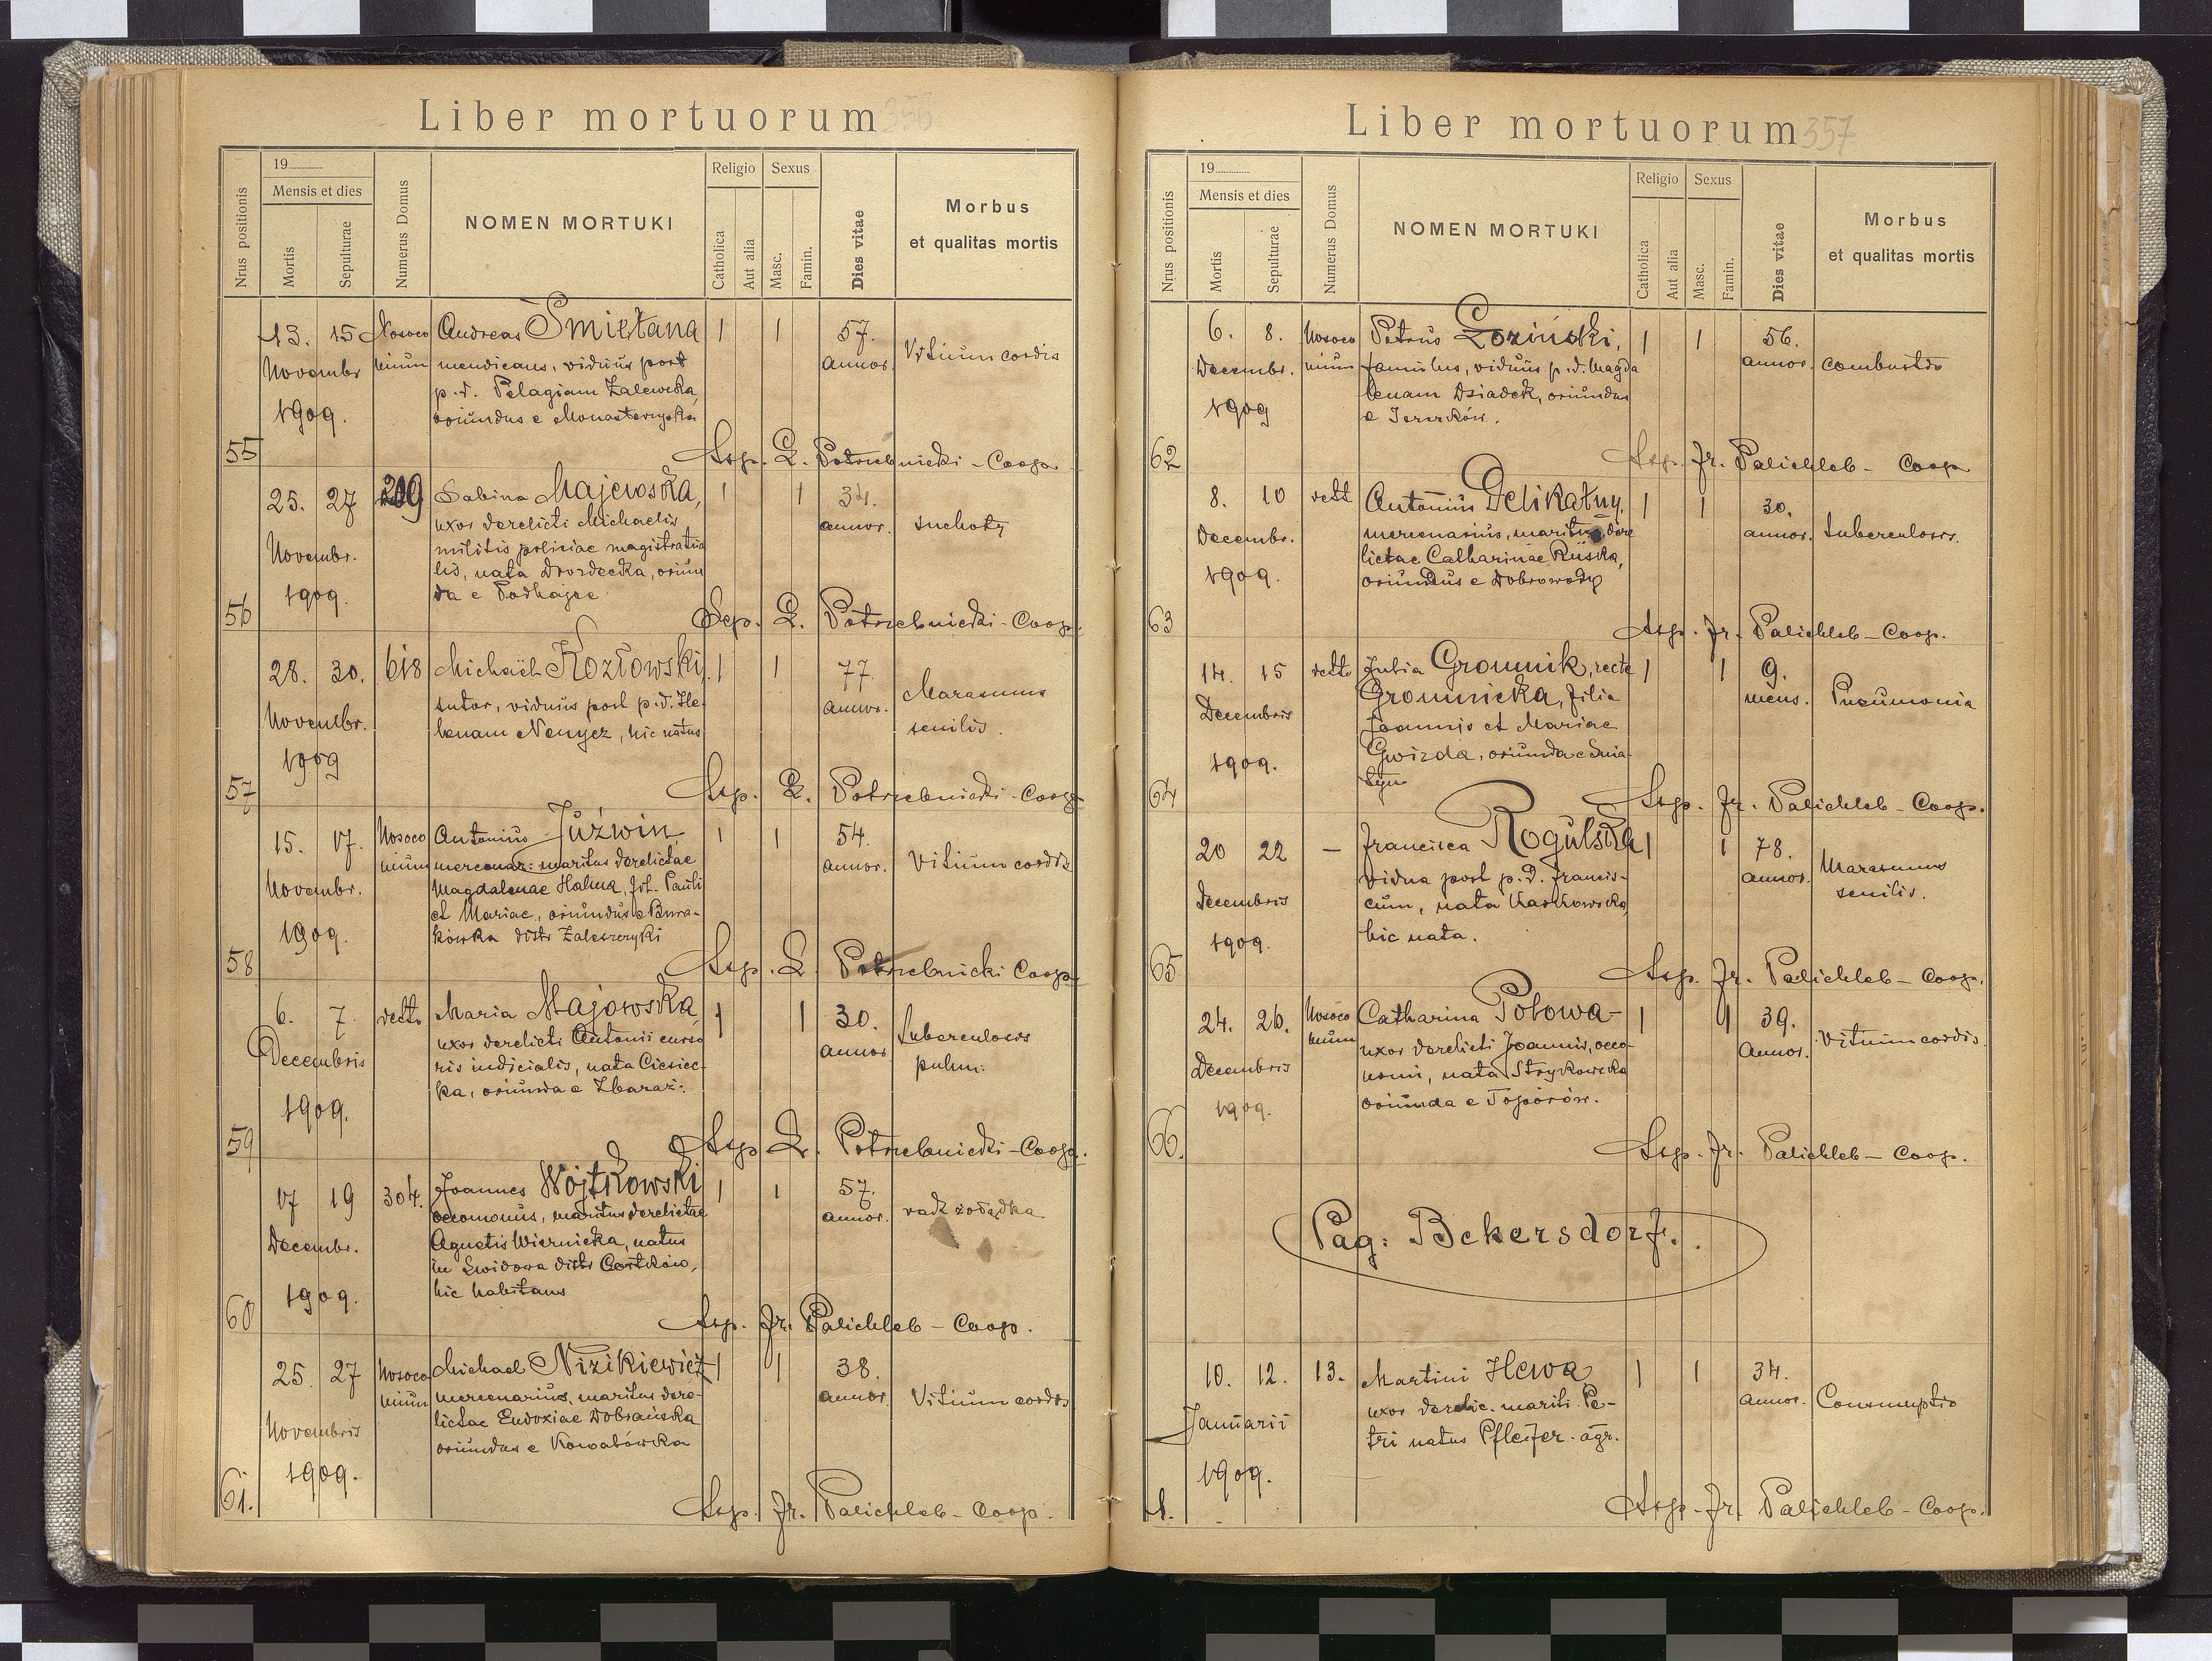 Liber mortuorum 356
19
Mensis et dies
Nrus positionis
Mortis
Sepulturae
Numerus Domus
NOMEN MORTUKI
Religio
Catholica
Aut alia
Sexus
Masc.
Famin.
Dies vitae
Morbus
et qualitas mortis
13. 15 Nosoco Andreas Śmietana 1 1 57.
Novembr nium mendicans, viduus post annor. Vitium cordis
p. d. Pelagiam Zalewska,
1909. oriundus e Monasterzyska
55 Sep. L. Potrzebnicki - Coop.
25. 27 209 Sabina Majewska, 1 1 34.
uxor derelicti Michaelis annor. suchoty
Novembr. militis policiae magistratua
lis, nata Drozdecka, oriun
1909. da e Podhajce
56 Sep. L. Potrzebnicki - Coop.
28. 30. 618 Michaël Kozłowski, 1 1 77.
sutor, viduus post p. d. He- annor. Marasmus
Novembr. lenam Nenycz, hic natus senilis.
1909
57 Sep. L. Potrzebnicki - Coop
15. 17. Nosoco Antonius Juźwin 1 1 54.
nium mercenar: maritus derelictae annor. Vitium cordis
Novembr. Magdalenae Halina, fil. Pauli
et Mariae, oriundus e Bura-
1909. kówka distr Zaleszczyki
58 Sep. L. Potrzebnicki Coop.
6. 7. detto Maria Majowska, 1 1 30. tuberculosis
Decembris uxor derelicti Antonii curso annor pulm:
ris iudicialis, nata Ciesiec-
ka, oriunda e Zbaraż:
1909.
59 Sep L. Potrzebnicki - Coop.
17 19 304. Joannes Wojtkowski 1 1 57.
oeconomus, maritus derelictae annor. rak żołądka
Decembr. Agnetis Wiernicka, natus
in Swidowa distr Czortków,
1909. hic habitans
60 Sep. Fr. Palichleb - Coop.
25. 27 Nosoco Michael Nizikiewicz 1 1 38.
nium mercenarius, maritus dere- annor. Vitium cordis
Novembris lictae Eudoxiae Dobrańska
oriundus e Kowalówka
1909.
61. Sep. Fr. Palichleb - Coop.
Liber mortuorum 357
19
Mensis et dies
Nrus positionis
Mortis
Sepulturae
Numerus Domus
NOMEN MORTUKI
Religio
Catholica
Aut alia
Sexus
Masc.
Famin.
Dies vitae
Morbus
et qualitas mortis
6. 8. Nosoco Petrus Łoziński, 1 1 56.
Decembr. nium famulus, viduus p. d. Magda annor. combustio
lenam Dziadek, oriundus
1909 e Jezierzków.
62 Sep. Fr. Palichleb - Coop
8. 10 dett Antonius Delikatny, 1 1 30.
Decembr. mercenarius, maritus dere annor. tuberculosis.
lictae Catharinae Ruska,
1909. oriundus e Dobrowody
63 Sep. Fr. Palichleb - Coop.
14. 15 detto Julia Gromnik, recte 1 1 9.
Gromnicka, filia mens. Pneumonia
Decembris Joannis et Mariae
Gwizda, oriunda e Śnia-
1909. tyn
64 Sep. Fr. Palichleb - Coop.
20 22 - Francisca Rogulska 1 1 78. Marasmus
vidua post p. d. Francis- annor. senilis.
Decembris cum, nata Karkowska,
1909. hic nata.
65 Sep. Fr. Palichleb - Coop.
24. 26. Nosoco Catharina Połowa- 1 1 39.
nium uxor derelicti Joannis, oeco- annor. Vitium cordis.
Decembris nomi, nata Strykowska
1909. oriunda e Toporów.
66. Sep. Fr. Palichleb - Coop.
Pag: Bekersdorf.
10. 12. 13. Martini Hewa 1 1 34.
uxor derelic. mariti Pe- annor. Consumptio
Januarii tri natus Pfleifer. agr.
1909.
1. Sep. Fr. Palichleb - Coop.